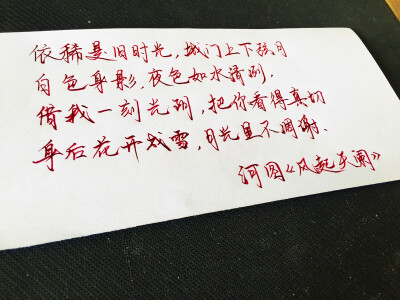 依稀是旧时光，城门上下弦月
白色身影，夜色如水清冽，
借我一刻光阴，把你看得真切
身后花开成雪，月光里不凋谢、
河图《风起天阑》